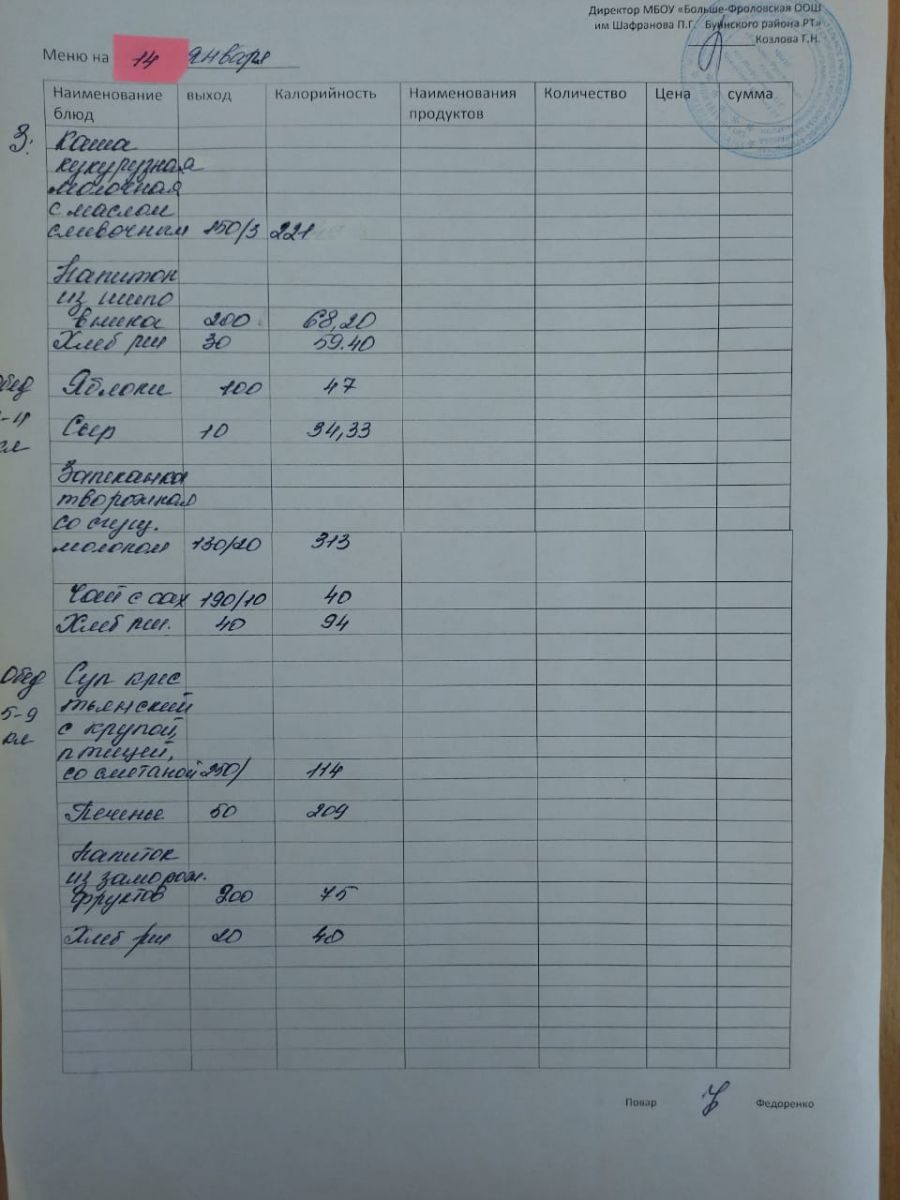 Директор МБОУ «Больше-Фроловская ООШ
им Шафранова П.Г. Буинского района РТ»
Козлова Г.Н.
Меню на 14 января
Наименование блюд выход Калорийность Наименования продуктов Количество Цена сумма
З. Каша
кукурузная
молочная
с маслом
сливочным 150/3 221
Напиток
из шипо
вника 200 68,20
Хлеб рш 30 59.40
Обед Яблоки 100 47
1-4
кл Сыр 10 34,33
Запеканка
творожная
со сгущ.
молоком 130/20 313
Чай с сах 190/10 40
Хлеб рш. 40 94
Обед Суп крес
5-9 тьянский
кл с крупой,
птицей,
со сметаной 250/ 114
Печенье 50 209
Напиток
из заморож.
фруктов 200 75
Хлеб рш 20 40
Повар Федоренко